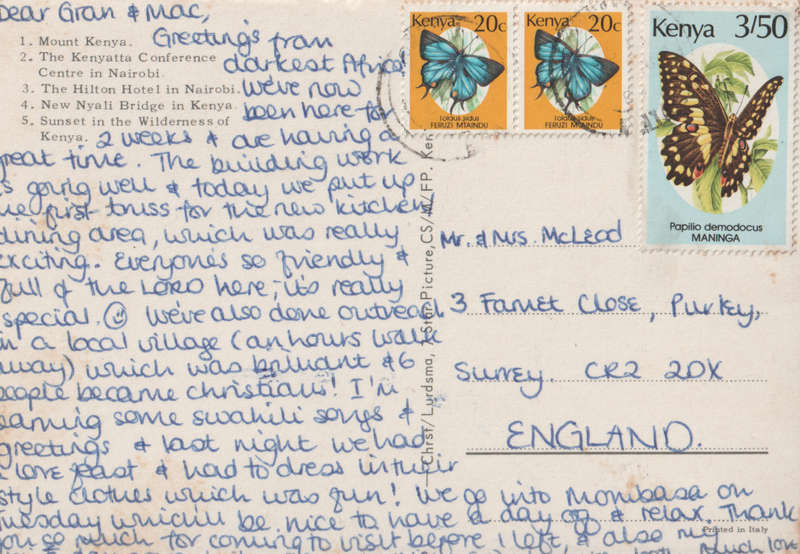 Dear Gran & Mac,
Greetings from
darkest Africa!
1. Mount Kenya.
2. The Kenyatta Conference
Centre in Nairobi.
3. The Hilton Hotel in Nairobi.
4. New Nyali Bridge in Kenya.
5. Sunset in the Wilderness of
Kenya.
We've now
been here for
2 weeks & are having a
great time. The building work
is going well & today we put up
the first truss for the new kitchen/
dining area, which was really
exciting. Everyone's so friendly &
full of the LORD here, it's really
special. ☺ We've also done outreach
in a local village (an hours walk
away) which was brilliant & 6
people became christians! I'm
learning some swahili songs &
greetings & last night we had
a love feast & had to dress in their
style clothes which was fun! We go into Mombasa on
Tuesday which'll be nice to have a day off & relax. Thank
you so much for coming to visit before I left, & also
Kenya 20c
Iolaus sidus
FERUZI MTAINDU
Kenya 20c
Iolaus sidus
FERUZI MTAINDU
Kenya 3/50
Papilio demodocus
MANINGA
Mr. & Mrs. McLeod
3 Famet Close, Purley,
Surrey. CR2 2DX
ENGLAND.
Picture, CS/M/FP. Ken
Printed in Italy